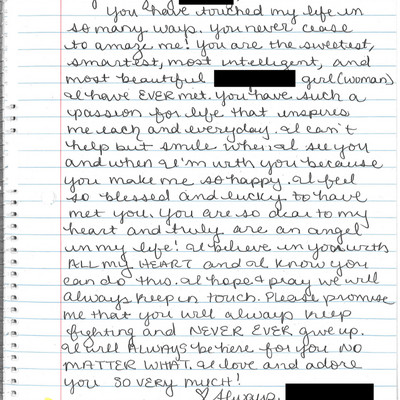 You have touched my life in
so many ways. You never cease
to amaze me! You are the sweetest,
smartest, most intelligent, and
most beautiful girl (woman)
I have EVER met. You have such a
passion for life that inspires
me each and everyday. I can't
help but smile when I see you
and when I'm with you because
you make me so happy. I feel
so blessed and lucky to have
met you. You are so dear to my
heart and truly are an angel
in my life! I believe in you with
ALL my HEART and I know you
can do this. I hope & pray we will
always keep in touch. Please promise
me that you will always keep
fighting and NEVER EVER give up.
I will ALWAYS be here for you NO
MATTER WHAT. I love and adore
you SO VERY MUCH!
♡ Always,